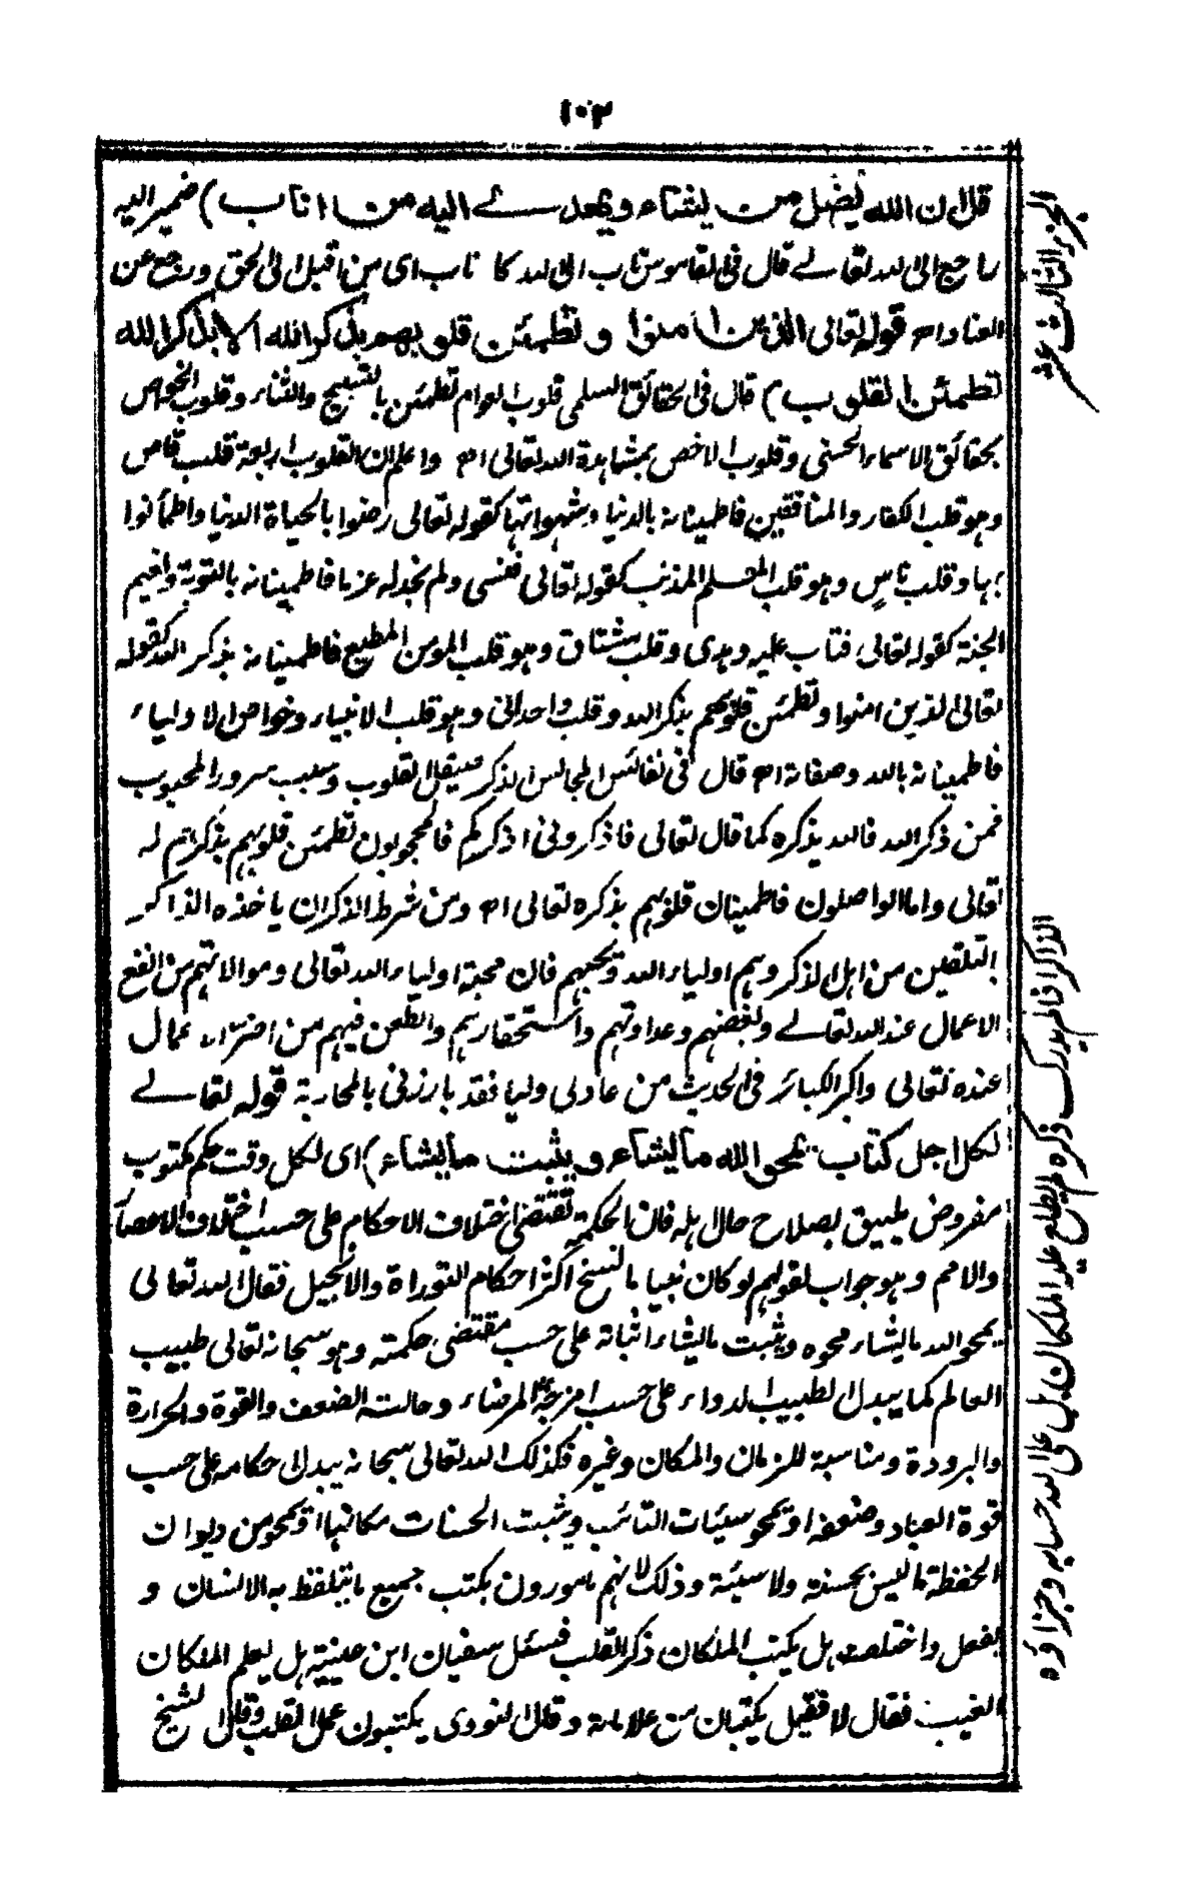 ١٠٢
قل ان الله يضل من يشاء ويهدى اليه من اناب) ضمير اليه
راجع الى الله تعالى قال فى القاموس تاب الى الله كاناب اى من اقبل الى الحق ورجع عن
العناد اه قوله تعالى الذين اٰمنوا وتطمئن قلوبهم بذكر الله الا بذكر الله
تطمئن القلوب) قال فى الحقائق السلمى قلوب العوام تطمئن بالتسبيح والثناء وقلوب الخواص
بحقائق الاسماء الحسنى وقلوب الاخص بمشاهدة الله تعالى اه واعلم ان القلوب اربعة قلب قاس
وهو قلب الكفار والمنافقين فاطمينانه بالدنيا وشهواتها كقوله تعالى رضوا بالحياة الدنيا واطمأنوا
بها وقلب ناس وهو قلب المسلم المذنب كقوله تعالى فنسى ولم نجد له عزما فاطمينانه بالتوبة ونعيم
الجنة كقوله تعالى فتاب عليه وهدى وقلب مشتاق وهو قلب المومن المطيع فاطمينانه بذكر الله كقوله
تعالى الذين امنوا وتطمئن قلوبهم بذكر الله وقلب واحدانى وهو قلب الانبياء وخواص الاولياء
فاطمينانه بالله وصفاته اه قال فى نفائس المجالس الذكر صيقل القلوب وسبب سرور المحبوب
فمن ذكر الله فالله يذكره كما قال تعالى فاذكرونى اذكركم فالمحجوبون تطمئن قلوبهم بذكرهم له
تعالى واما الواصلون فاطمينان قلوبهم بذكره تعالى اه ومن شرط الذكر ان ياخذه الذاكر
بالتلقين من اهل الذكر وهم اولياء الله وتحبهم فان محبة اولياء الله تعالى وموالاتهم من انفع
الاعمال عند الله تعالى وبغضهم وعداوتهم واستحقارهم والطعن فيهم من اضر الاعمال
عنده تعالى واكبر الكبائر فى الحديث من عادلى وليا فقد بارزنى بالمحاربة قوله تعالى
لكل اجل كتاب يمحو الله ما يشاء ويثبت ما يشاء) اى لكل وقت حكم مكتوب
مفروض يليق بصلاح حال اهله فان الحكمة تقتضى اختلاف الاحكام على حسب اختلاف الاعصار
والامم وهو جواب لقولهم لو كان نبيا ما نسخ اكثر احكام التوراة والانجيل فقال الله تعالى
يمحو الله ما يشاء محوه ويثبت ما يشاء اثباته على حسب مقتضى حكمته وهو سبحانه تعالى طبيب
العالم كما يبدل الطبيب الدواء على حسب امزجة المرضاء وحالته الضعف والقوة والحرارة
والبرودة ومناسبة للزمان والمكان وغيره فكذلك الله تعالى سبحانه يبدل احكامه على حسب
قوة العباد وضعفه او يمحو سيئات التائب ويثبت الحسنات مكانها او يمحو من ديوان
الحفظة ما ليس بحسنة ولا سيئة وذلك لانهم مامورون بكتب جميع ما يتلفظ به الانسان و
يفعل واختلف هل يكتب الملكان ذكر القلب فسئل سفيان ابن عيينة هل يعلم الملكان
الغيب فقال لا فقيل يكتبان من علامة وقال النووى يكتبون عمل القلب وقال الشيخ
الجزء الثالث عشر
الذاكر اذا لم يدرك ذكره لم يطلع عليه الملكان بل على الله حسابه وجزاؤه